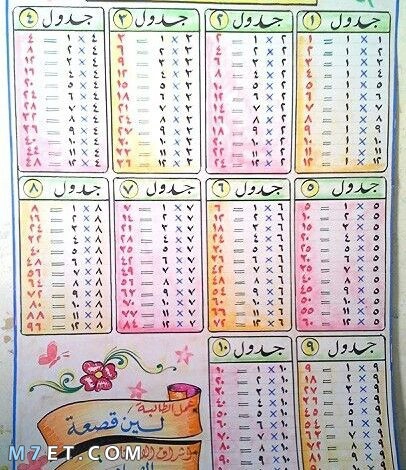 جدول ١
١ × ١ = ١
١ × ٢ = ٢
١ × ٣ = ٣
١ × ٤ = ٤
١ × ٥ = ٥
١ × ٦ = ٦
١ × ٧ = ٧
١ × ٨ = ٨
١ × ٩ = ٩
١ × ١٠ = ١٠
١ × ١١ = ١١
١ × ١٢ = ١٢
جدول ٢
٢ × ١ = ٢
٢ × ٢ = ٤
٢ × ٣ = ٦
٢ × ٤ = ٨
٢ × ٥ = ١٠
٢ × ٦ = ١٢
٢ × ٧ = ١٤
٢ × ٨ = ١٦
٢ × ٩ = ١٨
٢ × ١٠ = ٢٠
٢ × ١١ = ٢٢
٢ × ١٢ = ٢٤
جدول ٣
٣ × ١ = ٣
٣ × ٢ = ٦
٣ × ٣ = ٩
٣ × ٤ = ١٢
٣ × ٥ = ١٥
٣ × ٦ = ١٨
٣ × ٧ = ٢١
٣ × ٨ = ٢٤
٣ × ٩ = ٢٧
٣ × ١٠ = ٣٠
٣ × ١١ = ٣٣
٣ × ١٢ = ٣٦
جدول ٤
٤ × ١ = ٤
٤ × ٢ = ٨
٤ × ٣ = ١٢
٤ × ٤ = ١٦
٤ × ٥ = ٢٠
٤ × ٦ = ٢٤
٤ × ٧ = ٢٨
٤ × ٨ = ٣٢
٤ × ٩ = ٣٦
٤ × ١٠ = ٤٠
٤ × ١١ = ٤٤
٤ × ١٢ = ٤٨
جدول ٥
٥ × ١ = ٥
٥ × ٢ = ١٠
٥ × ٣ = ١٥
٥ × ٤ = ٢٠
٥ × ٥ = ٢٥
٥ × ٦ = ٣٠
٥ × ٧ = ٣٥
٥ × ٨ = ٤٠
٥ × ٩ = ٤٥
٥ × ١٠ = ٥٠
٥ × ١١ = ٥٥
٥ × ١٢ = ٦٠
جدول ٦
٦ × ١ = ٦
٦ × ٢ = ١٢
٦ × ٣ = ١٨
٦ × ٤ = ٢٤
٦ × ٥ = ٣٠
٦ × ٦ = ٣٦
٦ × ٧ = ٤٢
٦ × ٨ = ٤٨
٦ × ٩ = ٥٤
٦ × ١٠ = ٦٠
٦ × ١١ = ٦٦
٦ × ١٢ = ٧٢
جدول ٧
٧ × ١ = ٧
٧ × ٢ = ١٤
٧ × ٣ = ٢١
٧ × ٤ = ٢٨
٧ × ٥ = ٣٥
٧ × ٦ = ٤٢
٧ × ٧ = ٤٩
٧ × ٨ = ٥٦
٧ × ٩ = ٦٣
٧ × ١٠ = ٧٠
٧ × ١١ = ٧٧
٧ × ١٢ = ٨٤
جدول ٨
٨ × ١ = ٨
٨ × ٢ = ١٦
٨ × ٣ = ٢٤
٨ × ٤ = ٣٢
٨ × ٥ = ٤٠
٨ × ٦ = ٤٨
٨ × ٧ = ٥٦
٨ × ٨ = ٦٤
٨ × ٩ = ٧٢
٨ × ١٠ = ٨٠
٨ × ١١ = ٨٨
٨ × ١٢ = ٩٦
جدول ٩
٩ × ١ = ٩
٩ × ٢ = ١٨
٩ × ٣ = ٢٧
٩ × ٤ = ٣٦
٩ × ٥ = ٤٥
٩ × ٦ = ٥٤
٩ × ٧ = ٦٣
٩ × ٨ = ٧٢
جدول ١٠
١٠ × ١ = ١٠
١٠ × ٢ = ٢٠
١٠ × ٣ = ٣٠
١٠ × ٤ = ٤٠
١٠ × ٥ = ٥٠
١٠ × ٦ = ٦٠
١٠ × ٧ = ٧٠
١٠ × ٨ = ٨٠
عمل الطالبة/
لين قصعة
M7ET.COM